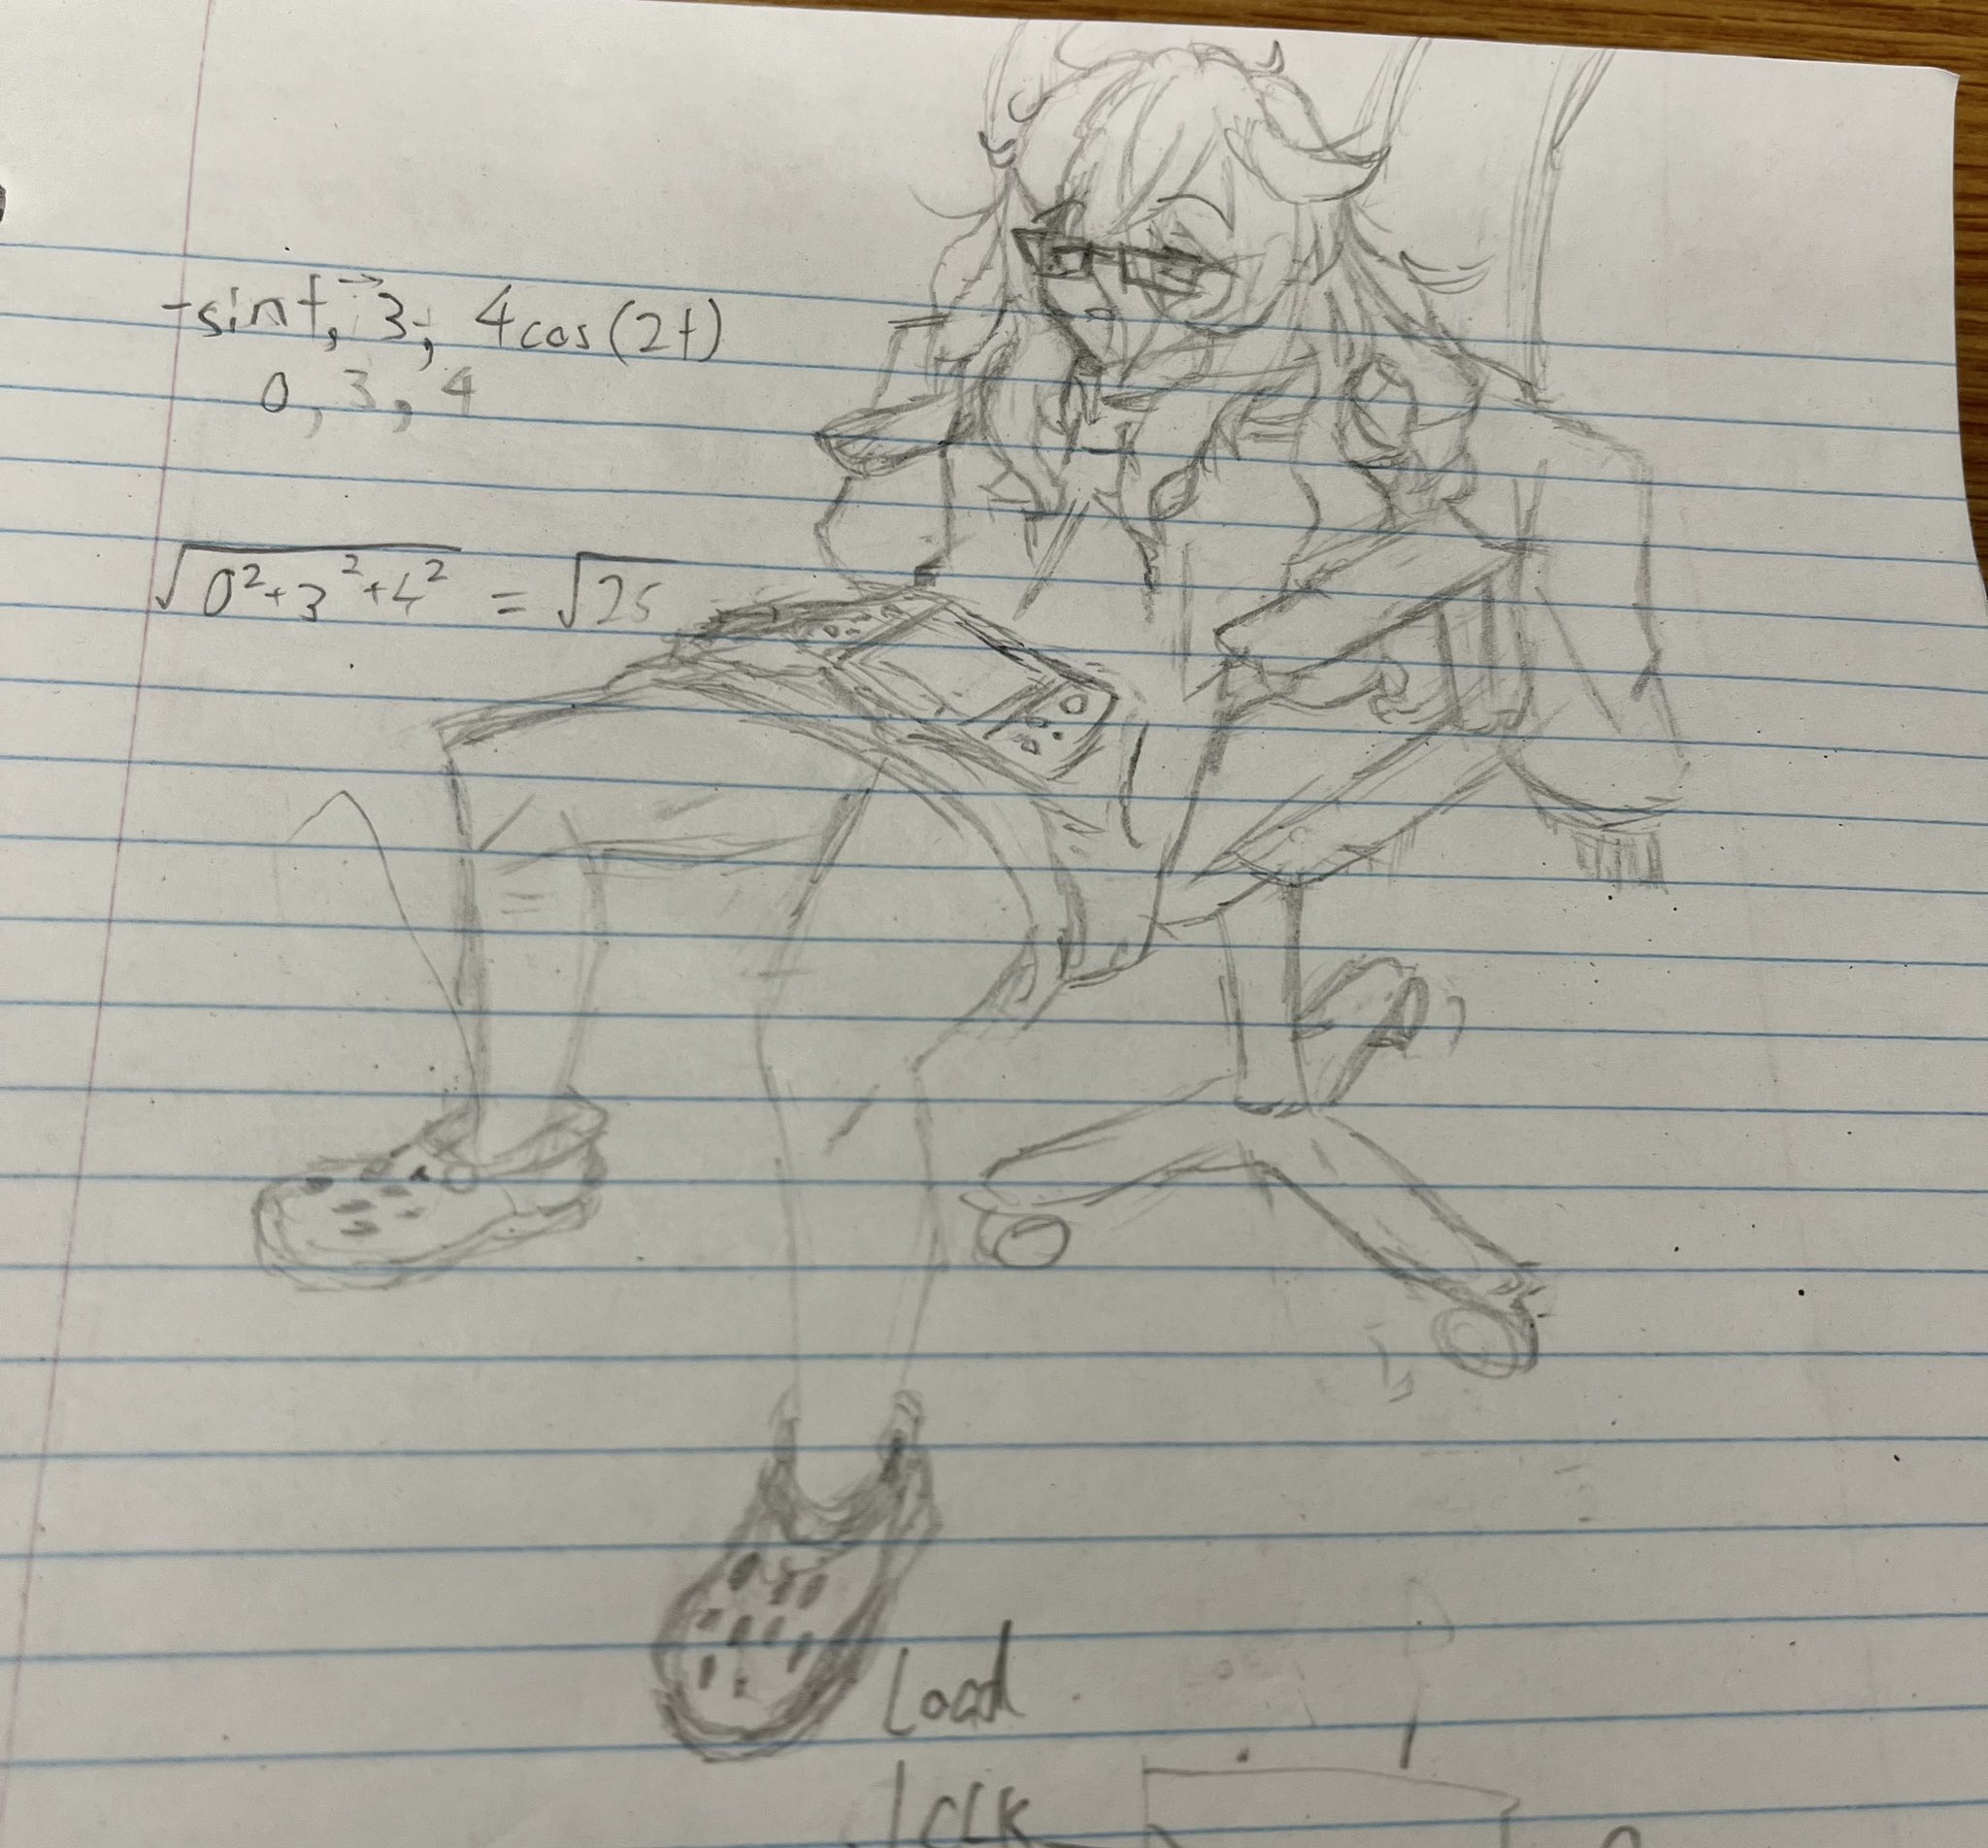 -sint, 3, 4cos(2t)
0, 3, 4
√0²+3²+4² = √25
Load
CLK